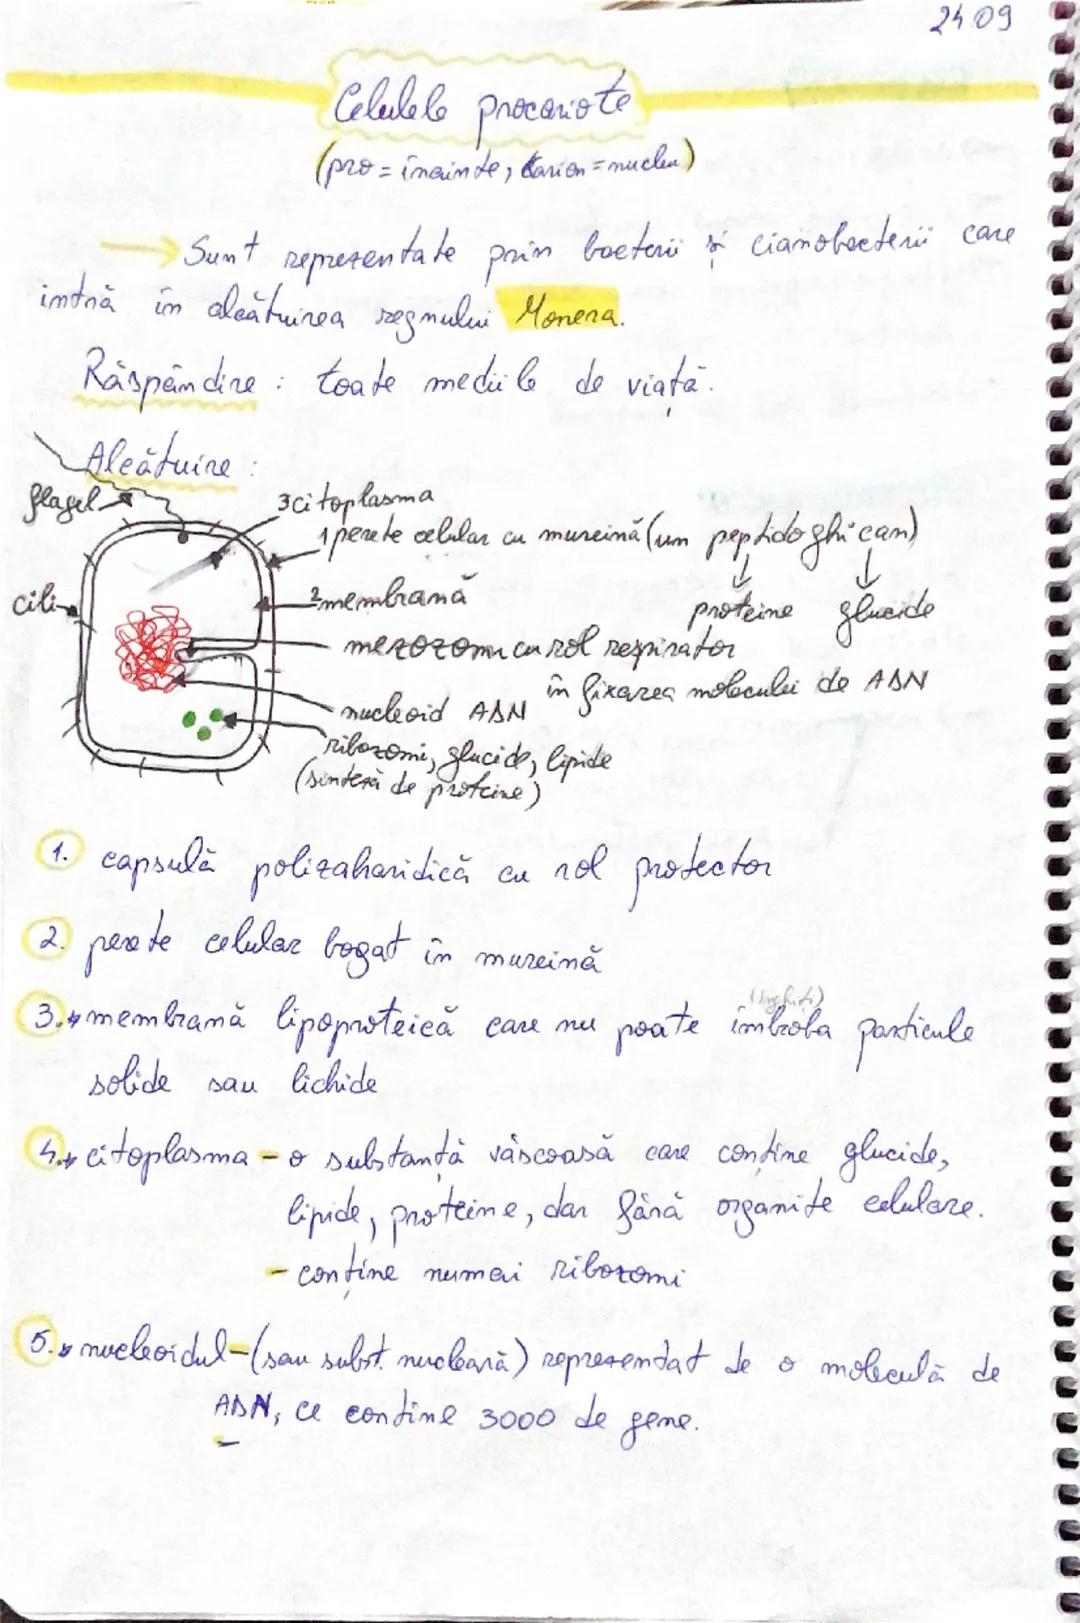 24.09
Celulele procariote
(pro = înainte, karion = nucleu)
Sunt reprezentate prin bacterii și cianobacterii care
intră în alcătuirea regnului Monera.
Răspândire : toate mediile de viață.
Alcătuire :
flagel
3 citoplasma
1 perete celular cu mureină (un peptidoglican)
cili
2 membrană
proteine glucide
mezozomi cu rol respirator
în fixarea moleculei de ADN
nucleoid ADN
ribozomi, glucide, lipide
(sinteză de proteine)
1. capsulă polizaharidică cu rol protector
2. perete celular bogat în mureină
(înghiți)
3. membrană lipoproteică care nu poate îmbroba particule
solide sau lichide
4. citoplasma - o substanță vâscoasă care conține glucide,
lipide, proteine, dar fără organite celulare.
- conține numai ribozomi
5. nucleoidul - (sau subst. nucleară) reprezentat de o moleculă de
ADN, ce conține 3000 de gene.